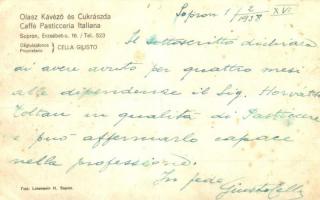 Olasz Kávézó és Cukrászda
Caffé Pasticceria Italiana
Sopron, Erzsébet-u. 16. / Tel. 523
Cégtulajdonos
Proprietario
CELLA GIUSTO
Sopron 1/2 1938 XVI
Il sottoscritto dichiara
di avere avuto per quattro mesi
alle dipendense il Sig. Horváth
Zoltan in qualità di Pasticcere
e può affermarlo capace
nella professione.
In fede
Giusto Cella